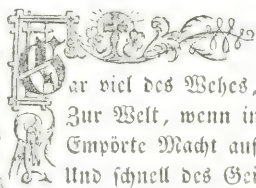 Gar viel des Wehes,
Zur Welt, wenn in
Empörte Macht auf
Und schnell des Gei